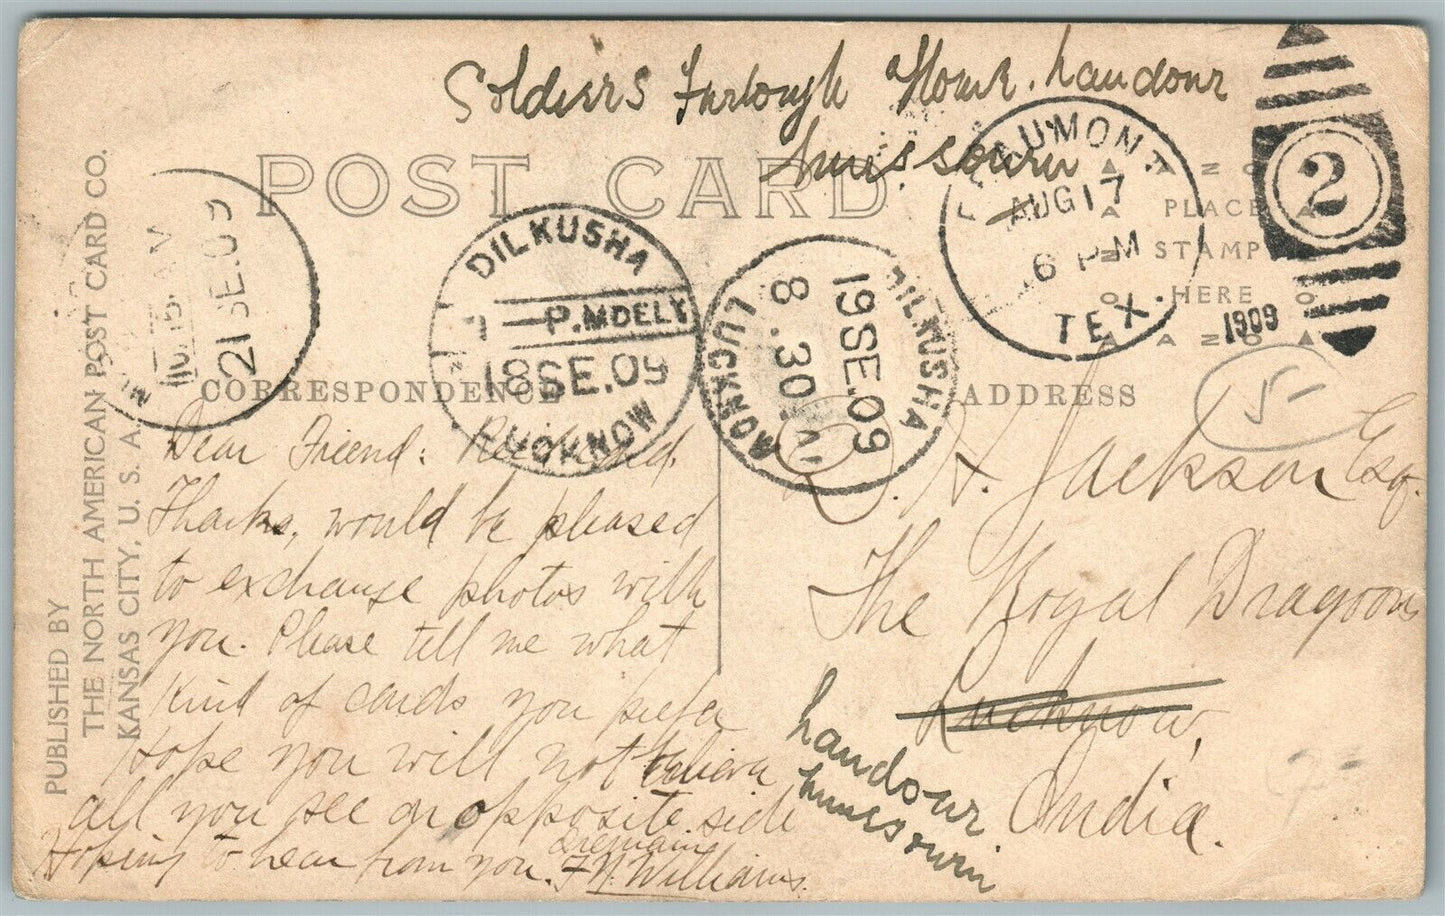 Soldiers Furlough Home. Landour
Mussourie
POST CARD
BEAUMONT
AUG 17
6 PM
TEX.
1909
2
PLACE
STAMP
HERE
DILKUSHA
P.M DELY
18 SE.09
LUCKNOW
DILKUSHA
19 SE.09
8.30
LUCKNOW
21 SE.09
PUBLISHED BY
THE NORTH AMERICAN POST CARD CO.
KANSAS CITY, U. S. A.
CORRESPONDENCE
Dear Friend: Rec'd card.
Thanks, would be pleased
to exchange photos with
you. Please tell me what
Kind of cards you prefer
Hope you will not believe
all you see on opposite side
Hoping to hear from you. I remain
F N. Williams.
ADDRESS
15-
H. Jackson Esq.
The Royal Dragoons
Lucknow,
India.
Landour
Mussourie